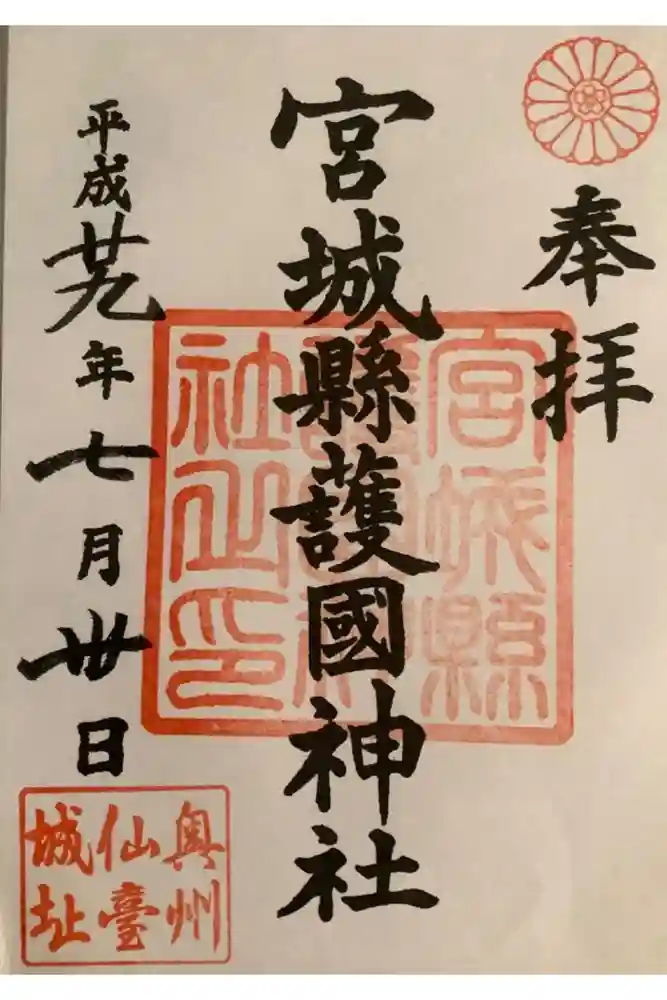 奉拝
宮城縣護國神社
宮城縣
護國神
社之印
平成廿九年七月卅日
奥州
仙臺
城址